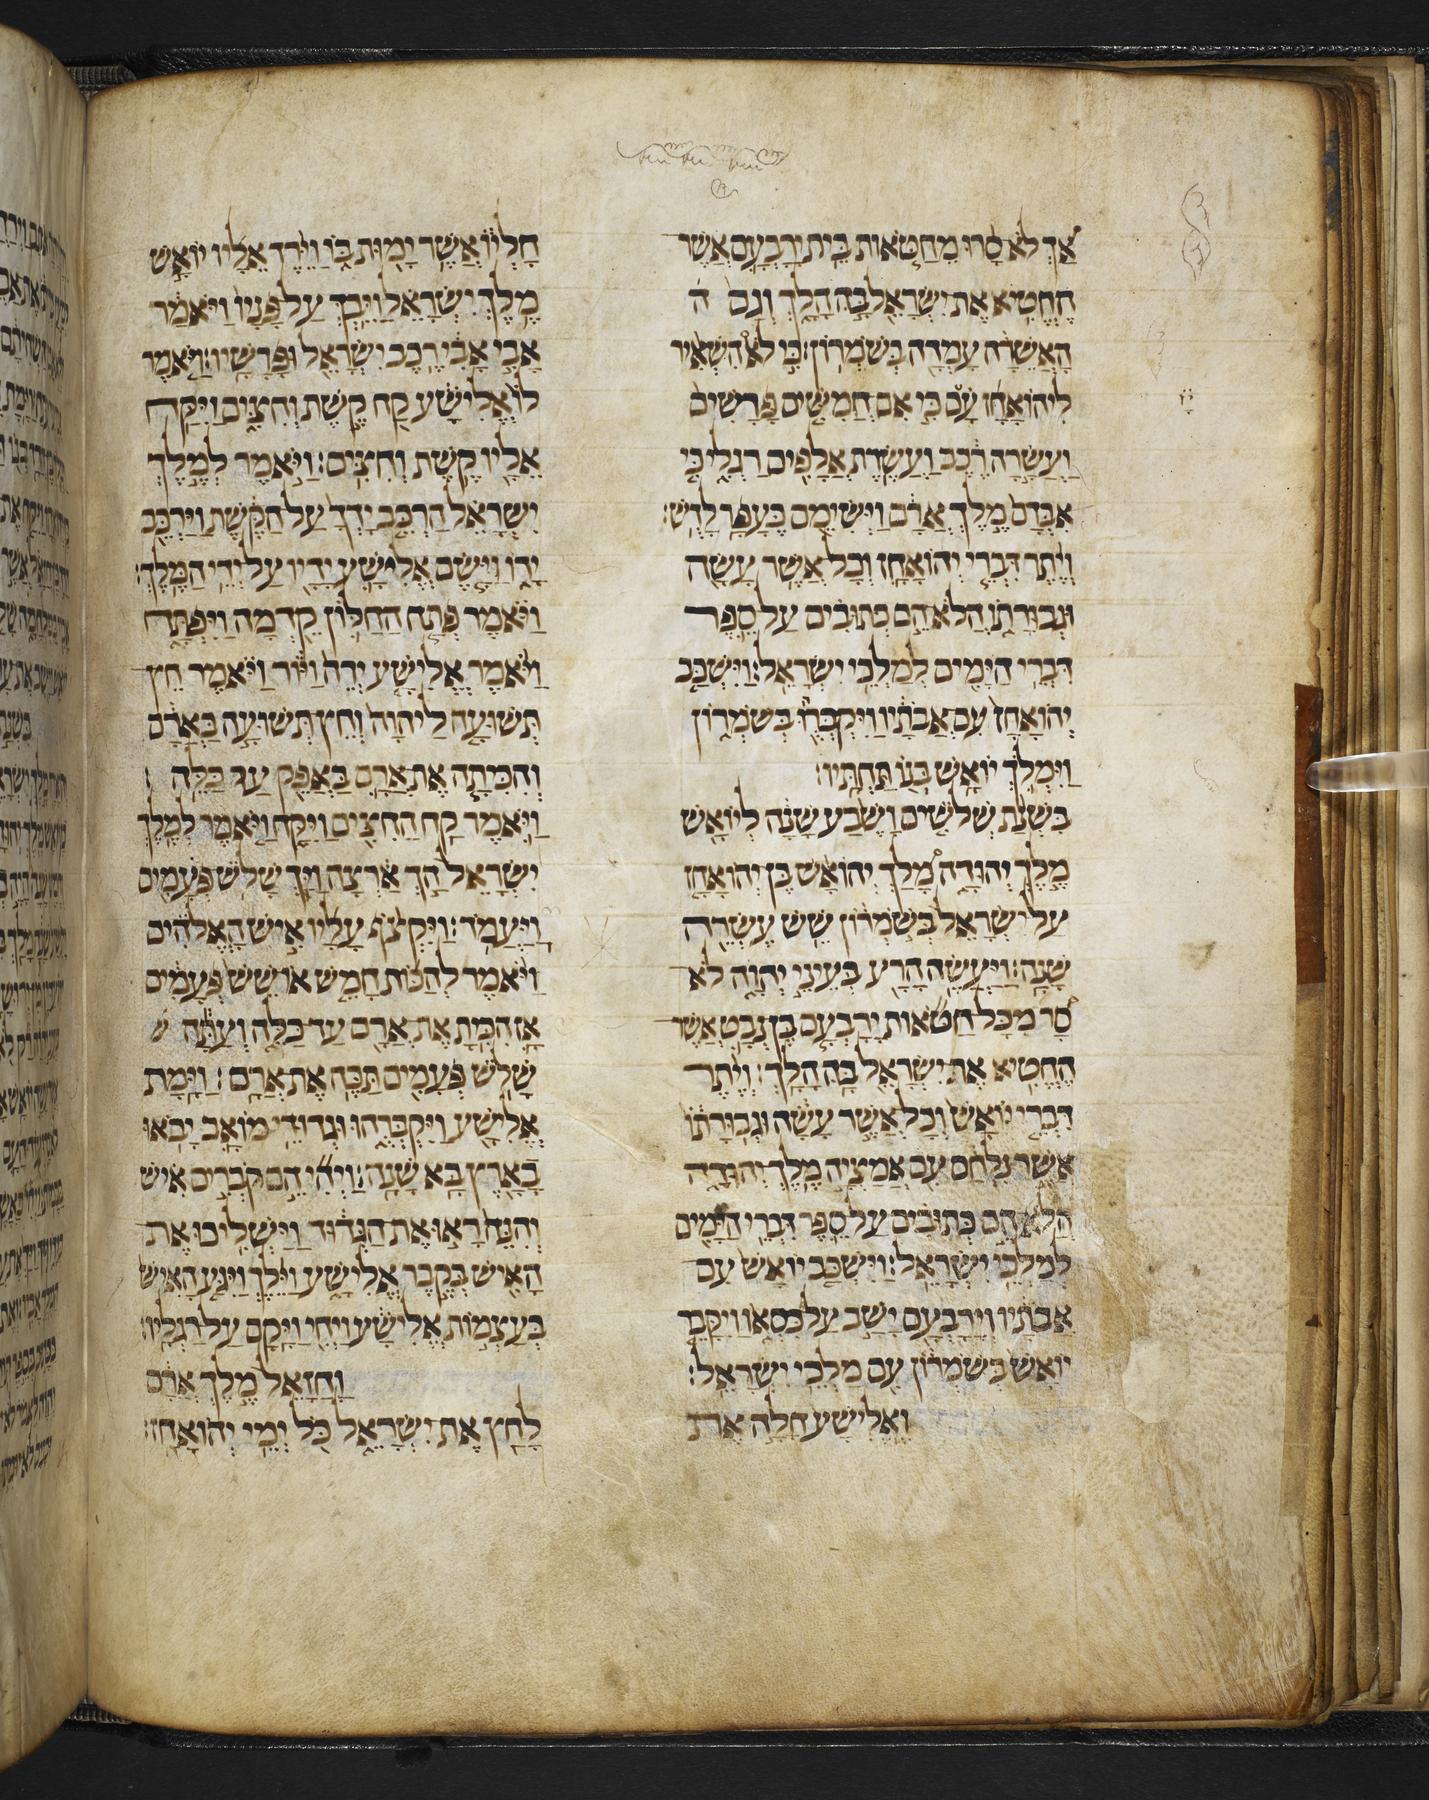 אַךְ לֹא סָרוּ מֵחַטֹּאות בֵּית יָרָבְעָם אֲשֶׁר
הֶחֱטִיא אֶת יִשְׂרָאֵל בָּהּ הָלָךְ וְגַם ה
הָאֲשֵׁרָה עָמְדָה בְּשֹׁמְרוֹן׃ כִּי לֹא הִשְׁאִיר
לִיהוֹאָחָז עָם כִּי אִם חֲמִשִּׁים פָּרָשִׁים
וַעֲשָׂרָה רֶכֶב וַעֲשֶׂרֶת אֲלָפִים רַגְלִי כִּי
אִבְּדָם מֶלֶךְ אֲרָם וַיְשִׂימֵם כֶּעָפָר לָדֻשׁ׃
וְיֶתֶר דִּבְרֵי יְהוֹאָחָז וְכָל אֲשֶׁר עָשָׂה
וּגְבוּרָתוֹ הֲלֹא הֵם כְּתוּבִים עַל סֵפֶר
דִּבְרֵי הַיָּמִים לְמַלְכֵי יִשְׂרָאֵל׃ וַיִּשְׁכַּב
יְהוֹאָחָז עִם אֲבֹתָיו וַיִּקְבְּרֻהוּ בְּשֹׁמְרוֹן
וַיִּמְלֹךְ יוֹאָשׁ בְּנוֹ תַּחְתָּיו׃
בִּשְׁנַת שְׁלֹשִׁים וָשֶׁבַע שָׁנָה לְיוֹאָשׁ
מֶלֶךְ יְהוּדָה מָלַךְ יְהוֹאָשׁ בֶּן יְהוֹאָחָז
עַל יִשְׂרָאֵל בְּשֹׁמְרוֹן שֵׁשׁ עֶשְׂרֵה
שָׁנָה׃ וַיַּעֲשֶׂה הָרַע בְּעֵינֵי יְהוָה לֹא
סָר מִכָּל חַטֹּאות יָרָבְעָם בֶּן נְבָט אֲשֶׁר
הֶחֱטִיא אֶת יִשְׂרָאֵל בָּהּ הָלָךְ׃ וְיֶתֶר
דִּבְרֵי יוֹאָשׁ וְכָל אֲשֶׁר עָשָׂה וּגְבוּרָתוֹ
אֲשֶׁר נִלְחַם עִם אֲמַצְיָה מֶלֶךְ יְהוּדָה
הֲלֹא הֵם כְּתוּבִים עַל סֵפֶר דִּבְרֵי הַיָּמִים
לְמַלְכֵי יִשְׂרָאֵל׃ וַיִּשְׁכַּב יוֹאָשׁ עִם
אֲבֹתָיו וְיָרָבְעָם יָשַׁב עַל כִּסְאוֹ וַיִּקָּבֵר
יוֹאָשׁ בְּשֹׁמְרוֹן עִם מַלְכֵי יִשְׂרָאֵל׃
וֶאֱלִישָׁע חָלָה אֶת
חָלְיוֹ אֲשֶׁר יָמוּת בּוֹ וַיֵּרֶד אֵלָיו יוֹאָשׁ
מֶלֶךְ יִשְׂרָאֵל וַיֵּבְךְּ עַל פָּנָיו וַיֹּאמַר
אָבִי אָבִי רֶכֶב יִשְׂרָאֵל וּפָרָשָׁיו׃ וַיֹּאמֶר
לוֹ אֱלִישָׁע קַח קֶשֶׁת וְחִצִּים וַיִּקַּח
אֵלָיו קֶשֶׁת וְחִצִּים׃ וַיֹּאמֶר לְמֶלֶךְ
יִשְׂרָאֵל הַרְכֵּב יָדְךָ עַל הַקֶּשֶׁת וַיַּרְכֵּב
יָדוֹ וַיָּשֶׂם אֱלִישָׁע יָדָיו עַל יְדֵי הַמֶּלֶךְ׃
וַיֹּאמֶר פְּתַח הַחַלּוֹן קֵדְמָה וַיִּפְתָּח
וַיֹּאמֶר אֱלִישָׁע יְרֵה וַיּוֹר וַיֹּאמֶר חֵץ
תְּשׁוּעָה לַיהוָה וְחֵץ תְּשׁוּעָה בַאֲרָם
וְהִכִּיתָה אֶת אֲרָם בַּאֲפֵק עַד כַּלֵּה׃
וַיֹּאמֶר קַח הַחִצִּים וַיִּקָּח וַיֹּאמֶר לְמֶלֶךְ
יִשְׂרָאֵל הַךְ אַרְצָה וַיַּךְ שָׁלֹשׁ פְּעָמִים
וַיַּעֲמֹד׃ וַיִּקְצֹף עָלָיו אִישׁ הָאֱלֹהִים
וַיֹּאמֶר לְהַכּוֹת חָמֵשׁ אוֹ שֵׁשׁ פְּעָמִים
אָז הִכִּיתָ אֶת אֲרָם עַד כַּלֵּה וְעַתָּה ש
שָׁלֹשׁ פְּעָמִים תַּכֶּה אֶת אֲרָם׃ וַיָּמָת
אֱלִישָׁע וַיִּקְבְּרֻהוּ וּגְדוּדֵי מוֹאָב יָבֹאוּ
בָאָרֶץ בָּא שָׁנָה׃ וַיְהִי הֵם קֹבְרִים אִישׁ
וְהִנֵּה רָאוּ אֶת הַגְּדוּד וַיַּשְׁלִיכוּ אֶת
הָאִישׁ בְּקֶבֶר אֱלִישָׁע וַיֵּלֶךְ וַיִּגַּע הָאִישׁ
בְּעַצְמוֹת אֱלִישָׁע וַיְחִי וַיָּקָם עַל רַגְלָיו׃
וַחֲזָאֵל מֶלֶךְ אֲרָם
לָחַץ אֶת יִשְׂרָאֵל כֹּל יְמֵי יְהוֹאָחָז׃